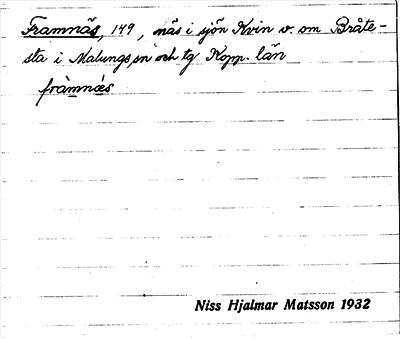 Framnäs, 149, näs i sjön Kvin v. om Bråte-
sta i Malungs sn och tg Kopp. län
fràmnǽs
Niss Hjalmar Matsson 1932